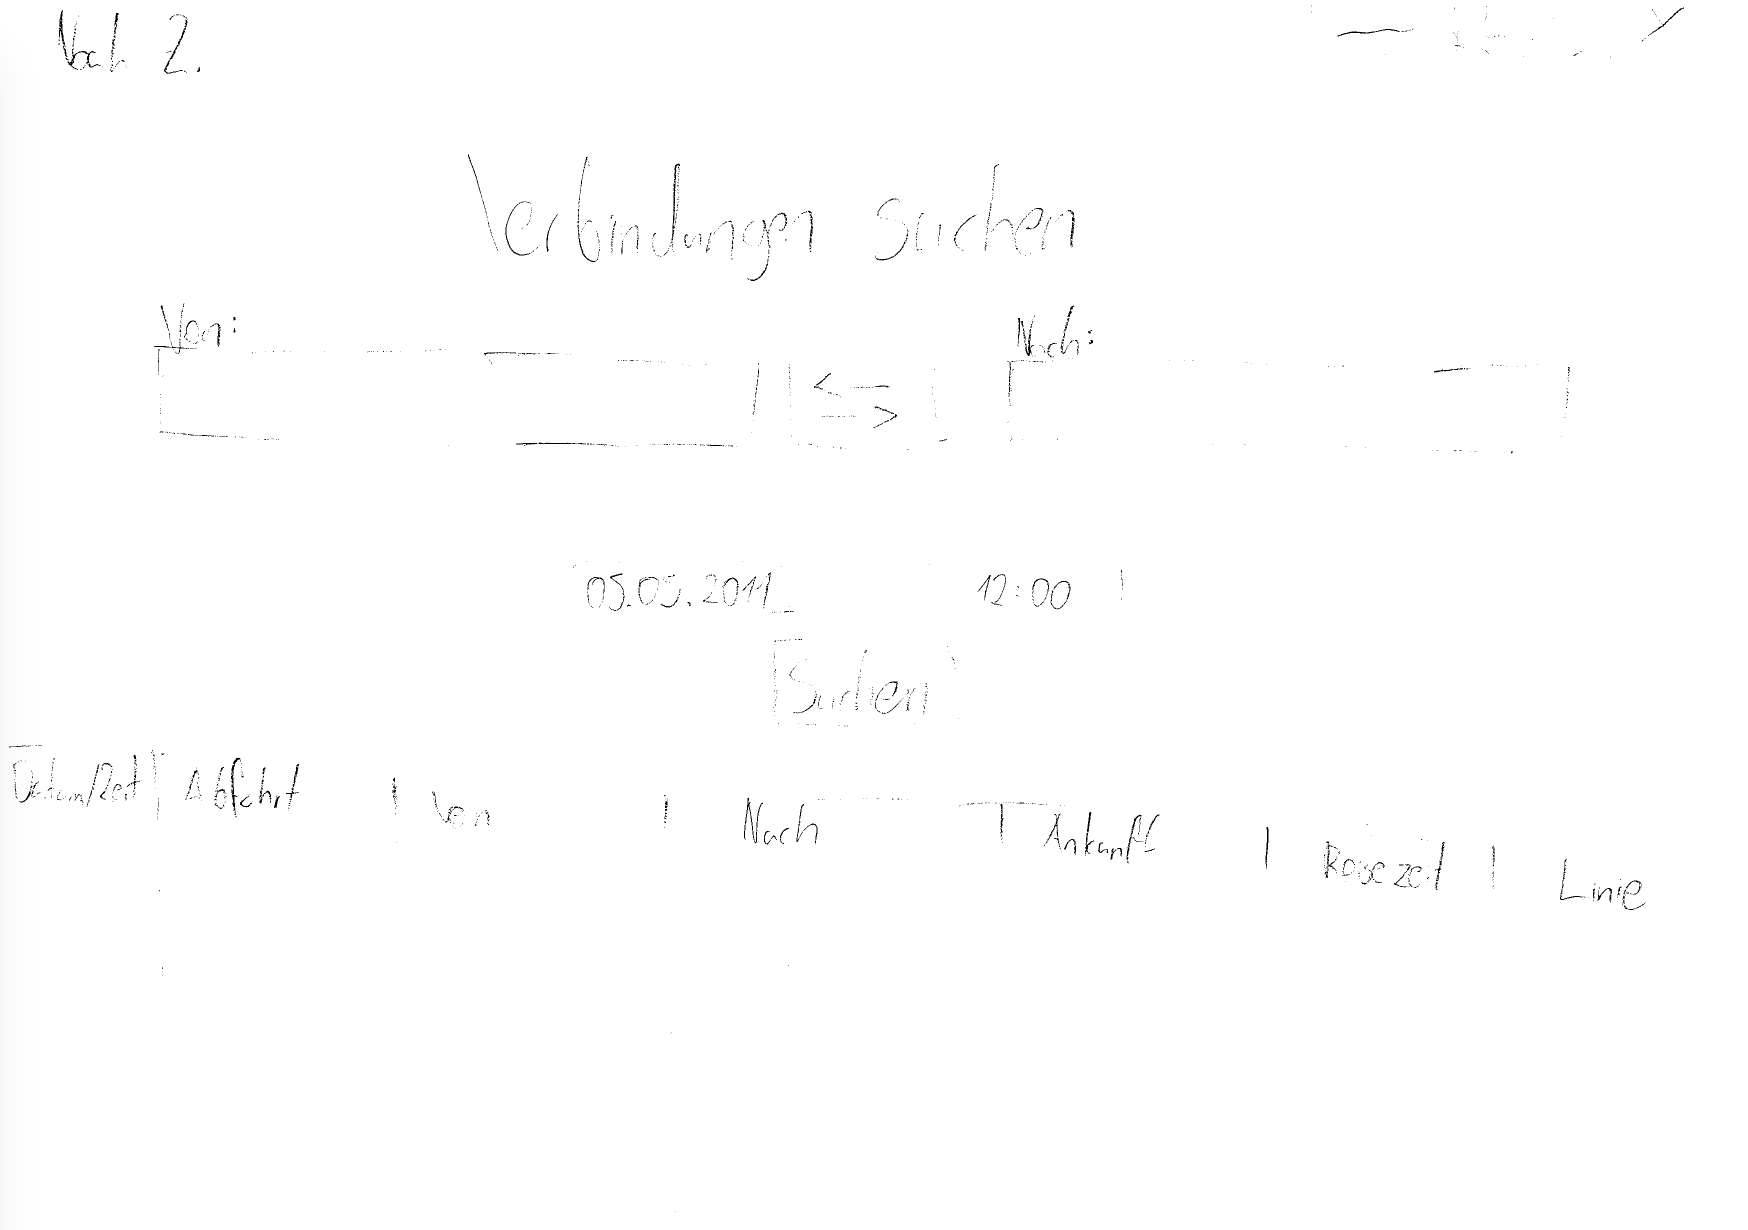 Nach 2.
Verbindungen suchen
Von: Nach:
05.05.2011 12:00
Suchen
Datum/Zeit | Abfahrt | Von | Nach | Ankunft | Reisezeit | Linie